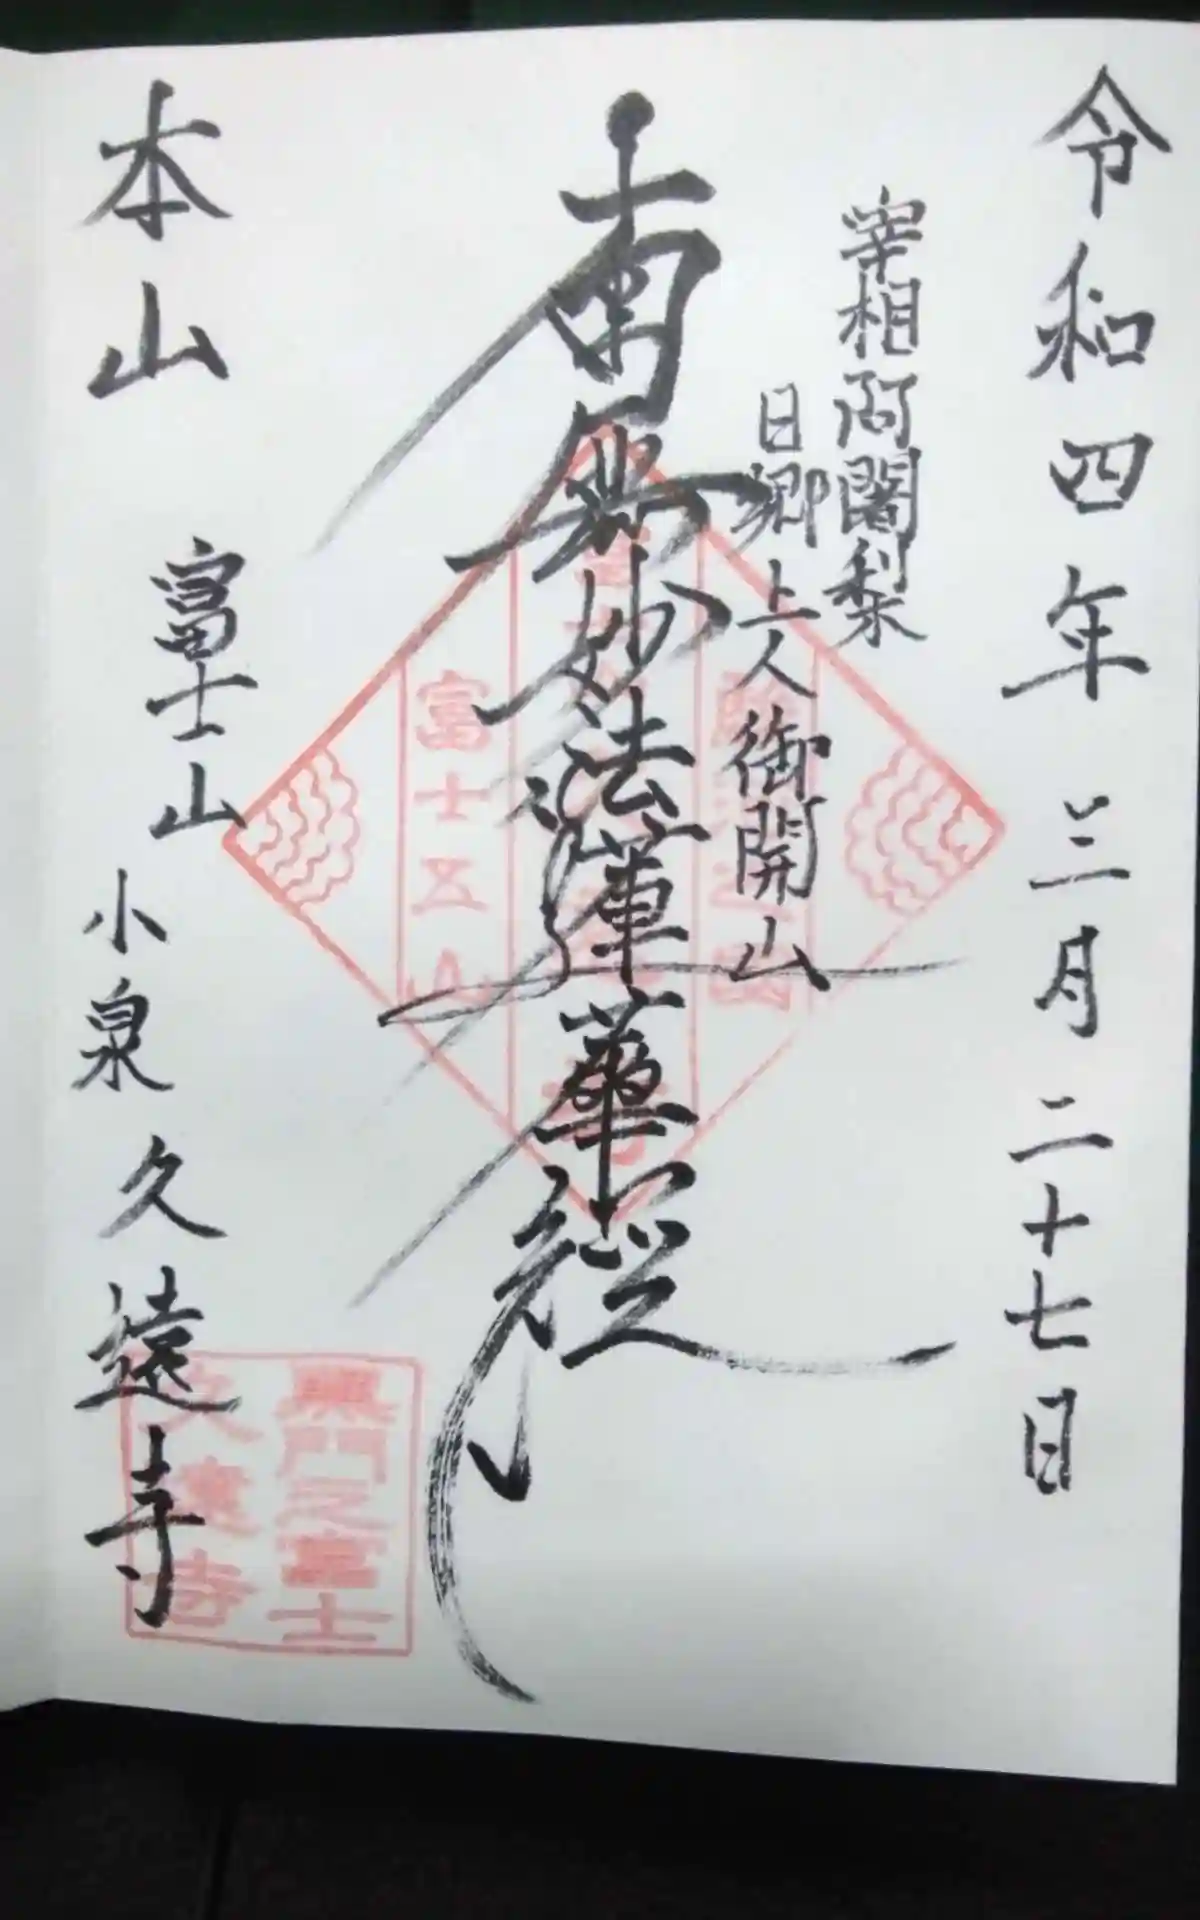 令和四年三月二十七日
宰相阿闍梨
日郷上人御開山
南無妙法蓮華経
本山
富士山
小泉久遠寺
富士五山
黒門之富士
久遠寺